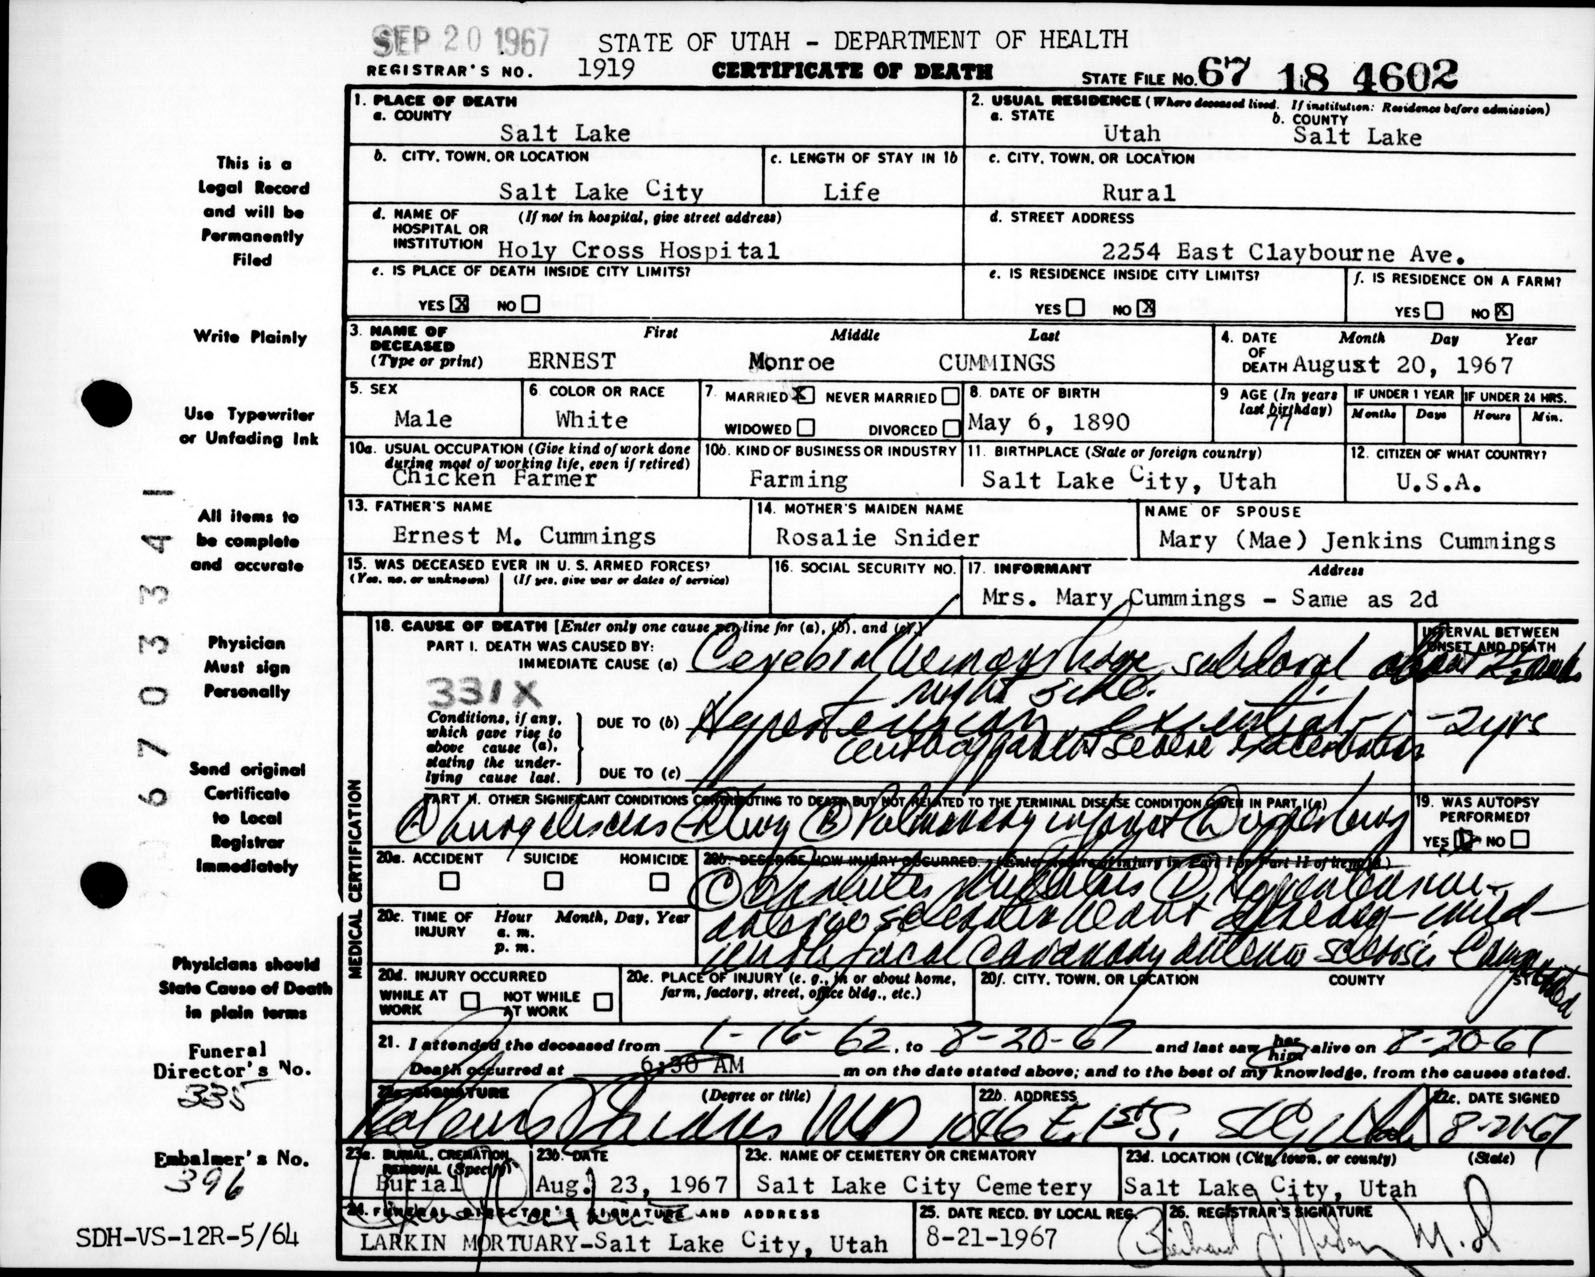 SEP 20 1967
STATE OF UTAH - DEPARTMENT OF HEALTH
REGISTRAR'S NO. 1919 CERTIFICATE OF DEATH STATE FILE NO. 67 18 4602
This is a
Legal Record
and will be
Permanently
Filed
Write Plainly
Use Typewriter
or Unfading Ink
All items to
be complete
and accurate
Physician
Must sign
Personally
Send original
Certificate
to Local
Registrar
Immediately
Physicians should
State Cause of Death
in plain terms
Funeral
Director's No.
335
Embalmer's No.
396
SDH-VS-12R-5/64
67033341
1. PLACE OF DEATH
a. COUNTY
Salt Lake
2. USUAL RESIDENCE (Where deceased lived. If institution: Residence before admission)
a. STATE b. COUNTY
Utah Salt Lake
b. CITY, TOWN, OR LOCATION
Salt Lake City
c. LENGTH OF STAY IN 1b
Life
c. CITY, TOWN, OR LOCATION
Rural
d. NAME OF HOSPITAL OR INSTITUTION (If not in hospital, give street address)
Holy Cross Hospital
d. STREET ADDRESS
2254 East Claybourne Ave.
e. IS PLACE OF DEATH INSIDE CITY LIMITS?
YES X NO
e. IS RESIDENCE INSIDE CITY LIMITS?
YES NO X
f. IS RESIDENCE ON A FARM?
YES NO X
3. NAME OF DECEASED (Type or print) First Middle Last
ERNEST Monroe CUMMINGS
4. DATE OF DEATH Month Day Year
August 20, 1967
5. SEX
Male
6. COLOR OR RACE
White
7. MARRIED X NEVER MARRIED
WIDOWED DIVORCED
8. DATE OF BIRTH
May 6, 1890
9 AGE (In years last birthday)
77
IF UNDER 1 YEAR IF UNDER 24 HRS.
Months Days Hours Min.
10a. USUAL OCCUPATION (Give kind of work done during most of working life, even if retired)
Chicken Farmer
10b. KIND OF BUSINESS OR INDUSTRY
Farming
11. BIRTHPLACE (State or foreign country)
Salt Lake City, Utah
12. CITIZEN OF WHAT COUNTRY?
U.S.A.
13. FATHER'S NAME
Ernest M. Cummings
14. MOTHER'S MAIDEN NAME
Rosalie Snider
NAME OF SPOUSE
Mary (Mae) Jenkins Cummings
15. WAS DECEASED EVER IN U. S. ARMED FORCES?
(Yes, no, or unknown) (If yes, give war or dates of service)
16. SOCIAL SECURITY NO.
17. INFORMANT Address
Mrs. Mary Cummings - Same as 2d
MEDICAL CERTIFICATION
18. CAUSE OF DEATH [Enter only one cause per line for (a), (b), and (c).]
INTERVAL BETWEEN ONSET AND DEATH
PART I. DEATH WAS CAUSED BY:
IMMEDIATE CAUSE (a) Cerebral hemorrhage, subdural about
right side.
331X
Conditions, if any, which gave rise to above cause (a), stating the underlying cause last.
DUE TO (b) Hypertension essential - 2yrs
severe exacerbation
DUE TO (c)
PART II. OTHER SIGNIFICANT CONDITIONS CONTRIBUTING TO DEATH BUT NOT RELATED TO THE TERMINAL DISEASE CONDITION GIVEN IN PART I(a)
(B) Pulmonary infarct
19. WAS AUTOPSY PERFORMED?
YES NO
20a. ACCIDENT SUICIDE HOMICIDE
20b. DESCRIBE HOW INJURY OCCURRED. (Enter nature of injury in Part I or Part II of item 18.)
(C) Diabetes Mellitus (D) Hypertensive
arterio sclerotic heart disease - mild
with focal coronary arterio sclerosis
20c. TIME OF INJURY Hour Month, Day, Year
a. m.
p. m.
20d. INJURY OCCURRED
WHILE AT WORK NOT WHILE AT WORK
20e. PLACE OF INJURY (e. g., in or about home, farm, factory, street, office bldg., etc.)
20f. CITY, TOWN, OR LOCATION COUNTY STATE
21. I attended the deceased from 1-16-62, to 8-20-67 and last saw her him alive on 8-20-67
Death occurred at 6:30 AM m on the date stated above; and to the best of my knowledge, from the causes stated.
22a. SIGNATURE (Degree or title)
MD
22b. ADDRESS
1046 E. 1st S. SLC, Utah
22c. DATE SIGNED
8-21-67
23a. BURIAL, CREMATION, REMOVAL (Specify)
Burial
23b. DATE
Aug. 23, 1967
23c. NAME OF CEMETERY OR CREMATORY
Salt Lake City Cemetery
23d. LOCATION (City, town, or county) (State)
Salt Lake City, Utah
24. FUNERAL DIRECTOR'S SIGNATURE AND ADDRESS
LARKIN MORTUARY-Salt Lake City, Utah
25. DATE RECD. BY LOCAL REG.
8-21-1967
26. REGISTRAR'S SIGNATURE
M.D